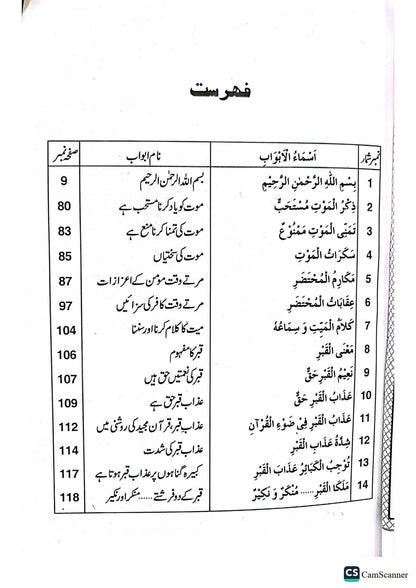 فہرست
نمبر شمار اَسْمَاءُ الْاَبْوَابِ نام ابواب صفحہ نمبر
1 بِسْمِ اللّٰهِ الرَّحْمٰنِ الرَّحِيْمِ بسم اللہ الرحمٰن الرحیم 9
2 ذِكْرُ الْمَوْتِ مُسْتَحَبٌّ موت کو یاد کرنا مستحب ہے 80
3 تَمَنِّى الْمَوْتِ مَمْنُوْعٌ موت کی تمنا کرنا منع ہے 83
4 سَكَرَاتُ الْمَوْتِ موت کی سختیاں 85
5 مَكَارِمُ الْمُحْتَضَرِ مرتے وقت مومن کے اعزازات 87
6 عِقَابَاتُ الْمُحْتَضَرِ مرتے وقت کافر کی سزائیں 97
7 كَلَامُ الْمَيِّتِ وَ سِمَاعُهُ میت کا کلام کرنا اور سننا 104
8 مَعْنَى الْقَبْرِ قبر کا مفہوم 106
9 نَعِيْمُ الْقَبْرِ حَقٌّ قبر کی نعمتیں حق ہیں 107
10 عَذَابُ الْقَبْرِ حَقٌّ عذاب قبر حق ہے 109
11 عَذَابُ الْقَبْرِ فِىْ ضَوْءِ الْقُرْآنِ عذاب قبر، قرآن مجید کی روشنی میں 112
12 شِدَّةُ عَذَابِ الْقَبْرِ عذاب قبر کی شدت 114
13 تُوْجِبُ الْكَبَائِرُ عَذَابَ الْقَبْرِ کبیرہ گناہوں پر عذاب قبر ہوتا ہے 117
14 مَلَكَا الْقَبْرِ ...... مُنْكَرٌ وَ نَكِيْرٌ قبر کے دو فرشتے ...... منکر اور نکیر 118
CS CamScanner